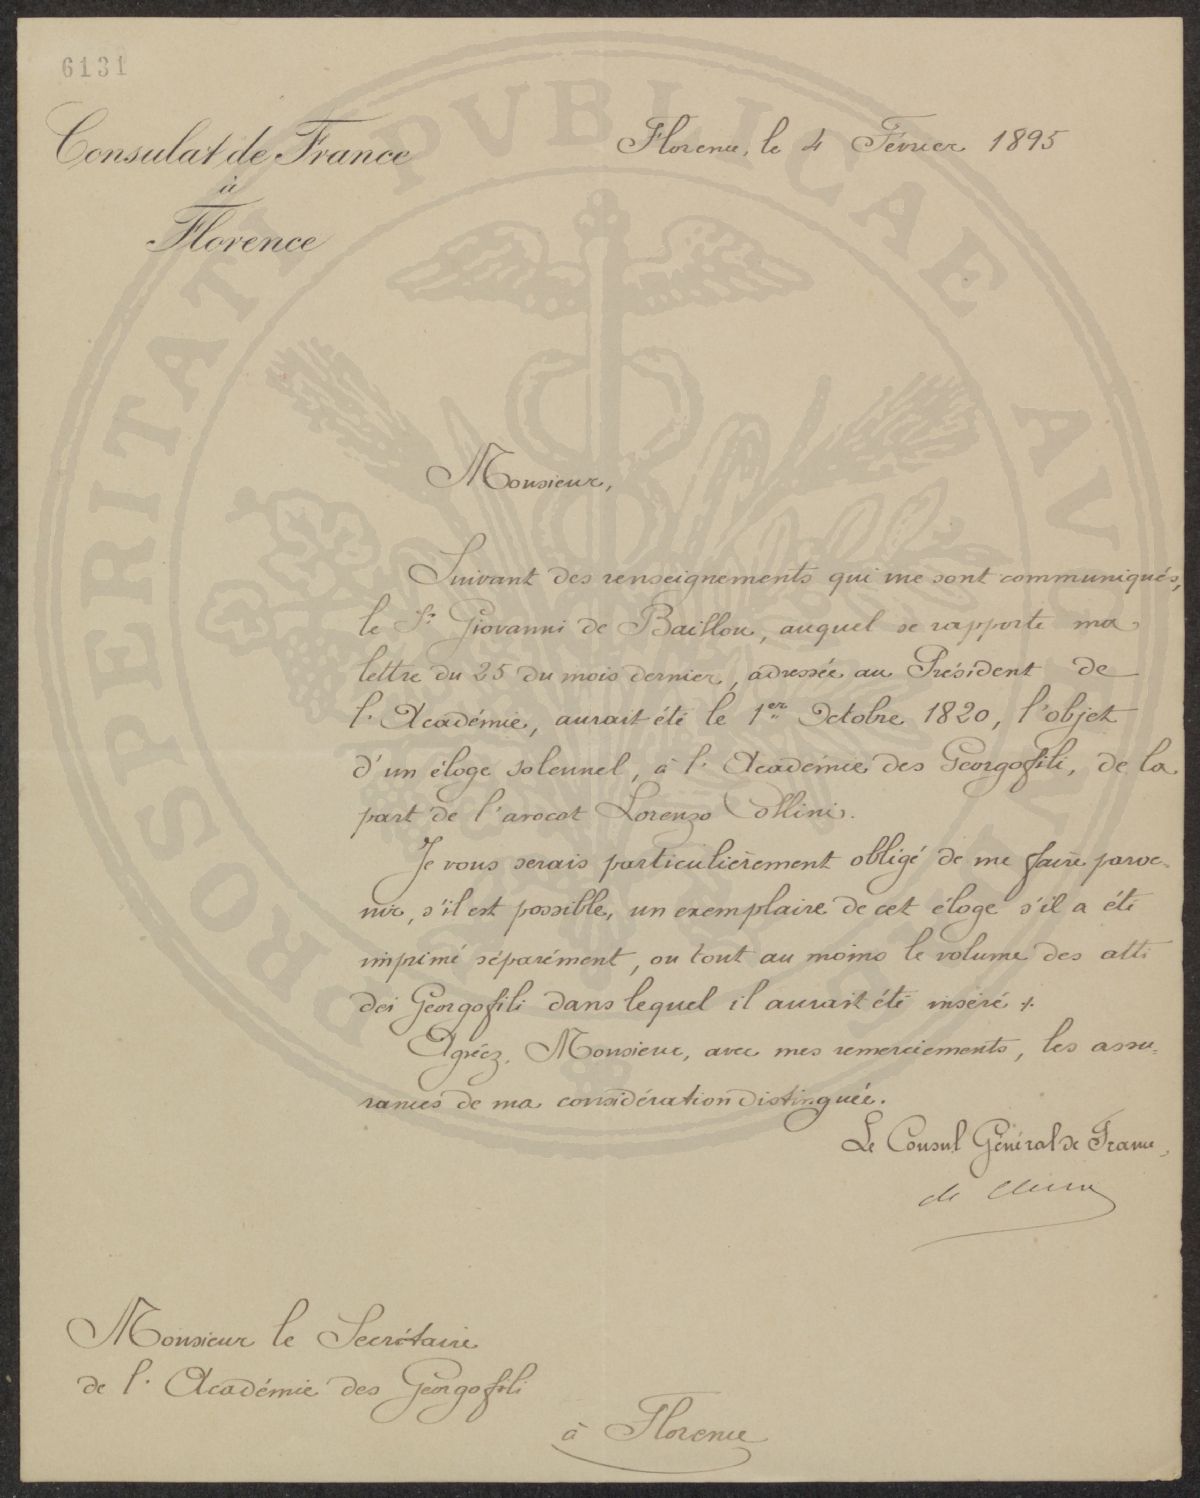 6131
Consulat de France
à
Florence
Florence, le 4 Février 1895
PROSPERITATI PVBLICAE AVGENDAE
Monsieur,
Suivant des renseignements qui me sont communiqués,
le Sr. Giovanni de Baillou, auquel se rapporte ma
lettre du 25 du mois dernier, adressée au Président de
l'Académie, aurait été le 1er Octobre 1820, l'objet
d'un éloge solennel, à l'Académie des Georgofili, de la
part de l'avocat Lorenzo Collini.
Je vous serais particulièrement obligé de me faire parve-
nir, s'il est possible, un exemplaire de cet éloge s'il a été
imprimé séparément, ou tout au moins le volume des atti
dei Georgofili dans lequel il aurait été inséré.
Agréez, Monsieur, avec mes remerciements, les assu-
rances de ma considération distinguée.
Le Consul Général de France,
de
Monsieur le Secrétaire
de l'Académie des Georgofili
à Florence